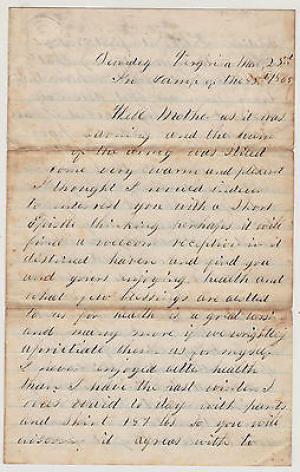 Virginia Mar. 25th
In Camp of the 1865
Well Mother as it was
and the
of the army was
some very warm and pleasant
I thought I
to interest you with a Short
Epistle thinking perhaps it will
find a reception in it
destined haven and find you
and yours enjoying health and
what few blessings are alloted
to us for health is a great
and many more if we wrightly
apritiate them as for myself
I never enjoyed better health
than I have the last winter I
was to day with pants
and shirt 187 lbs So you will
it agrees with to